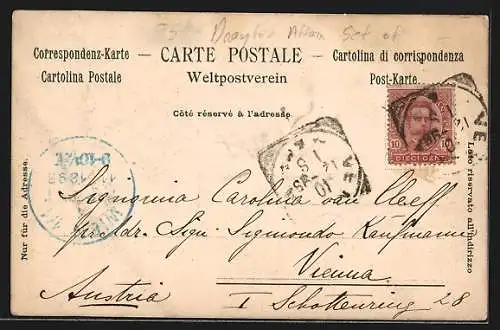 75 - Dreyfus Affair Set of
Correspondenz-Karte — CARTE POSTALE — Cartolina di corrispondenza
Cartolina Postale Weltpostverein Post-Karte.
Côté réservé à l'adresse.
10 10
DIECI CENT
VEN
Nur für die Adresse.
Lato riservato all'indirizzo
WIEN
Signorina Carolina van Cleeff
per Adr. Sign. Sigmondo Kaufmann
Vienna
Austria I Schottenring 28